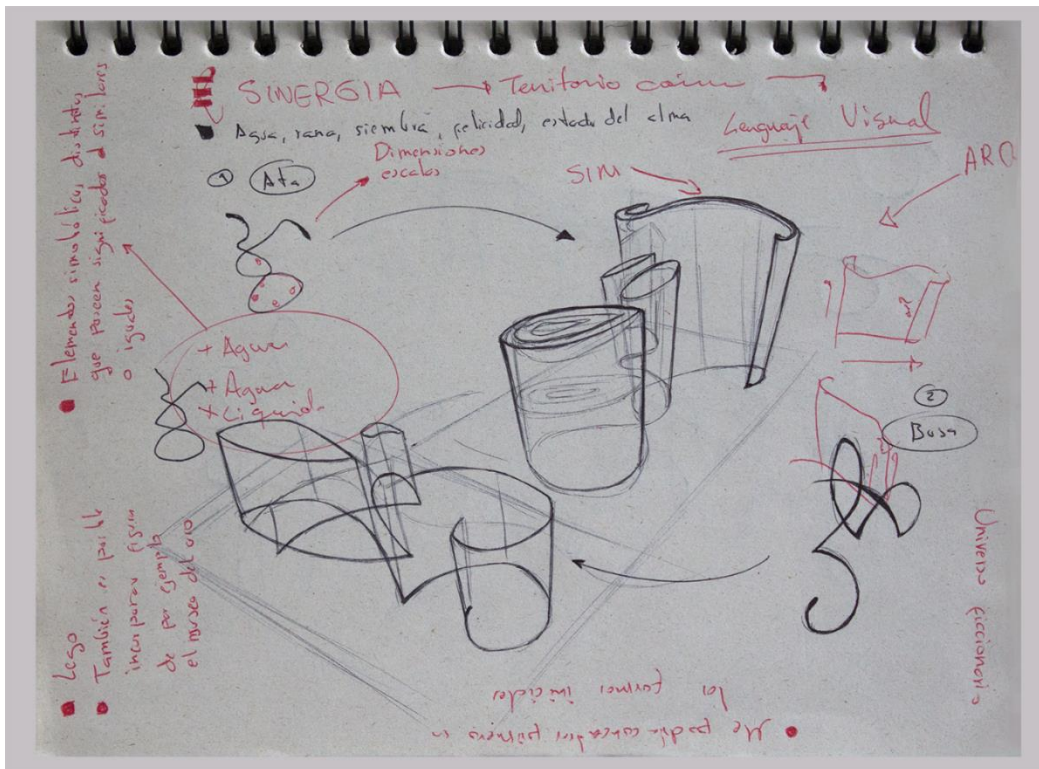 SINERGIA → Territorio común
Agua, rana, siembra, felicidad, estado del alma
Lenguaje Visual
Dimensiones
escalas
① Ata
SIM
ARQ
+ Agua
+ Agua
+ Líquido
② Bosa
Universo ficcionario
Elementos simbólicos, distintos,
que poseen significados similares
o iguales
Lego
También es posible
incorporar
de por ejemplo
el museo del oro
Me podría concentrar primero en
las formas iniciales